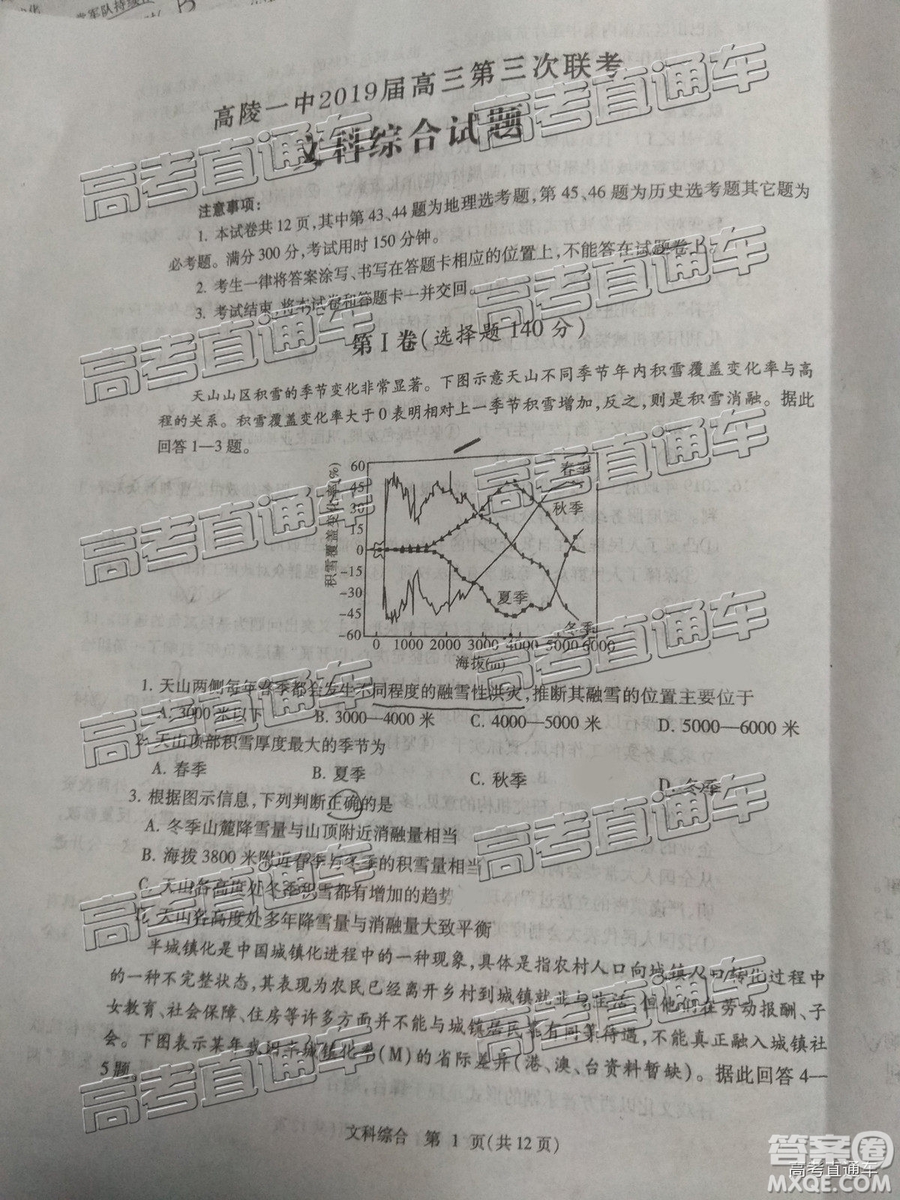 高陵一中2019届高三第三次联考
文科综合试题
注意事项：
1. 本试卷共12页，其中第43、44题为地理选考题，第45、46题为历史选考题其它题为
必考题。满分300分，考试用时150分钟。
2. 考生一律将答案涂写、书写在答题卡相应的位置上，不能答在试题卷上。
3. 考试结束，将本试卷和答题卡一并交回。
第Ⅰ卷(选择题140分)
天山山区积雪的季节变化非常显著。下图示意天山不同季节年内积雪覆盖变化率与高
程的关系。积雪覆盖变化率大于0表明相对上一季节积雪增加，反之，则是积雪消融。据此
回答1—3题。
积雪覆盖变化率(%)
60
45
30
15
0
-15
-30
-45
-60
春季
秋季
夏季
冬季
0 1000 2000 3000 4000 5000 6000
海拔(m)
1. 天山两侧每年春季都会发生不同程度的融雪性洪灾，推断其融雪的位置主要位于
A. 3000米以下 B. 3000—4000米 C. 4000—5000米 D. 5000—6000米
2. 天山顶部积雪厚度最大的季节为
A. 春季 B. 夏季 C. 秋季 D. 冬季
3. 根据图示信息，下列判断正确的是
A. 冬季山麓降雪量与山顶附近消融量相当
B. 海拔3800米附近春季与冬季的积雪量相当
C. 天山各高度处冬季积雪都有增加的趋势
D. 天山各高度处多年降雪量与消融量大致平衡
半城镇化是中国城镇化进程中的一种现象，具体是指农村人口向城镇人口转化过程中
的一种不完整状态，其表现为农民已经离开乡村到城镇就业与生活，但他们在劳动报酬、子
女教育、社会保障、住房等许多方面并不能与城镇居民享有同等待遇，不能真正融入城镇社
会。下图表示某年我国半城镇化率(M)的省际差异(港、澳、台资料暂缺)。据此回答4—
5题。
文科综合 第 1 页(共12页)
高考直通车
高考直通车
高考直通车
高考直通车
高考直通车
高考直通车
高考直通车
高考直通车
高考直通车
高考直通车
高考直通车
高考直通车
答案圈
高考直通车
MXQE.COM